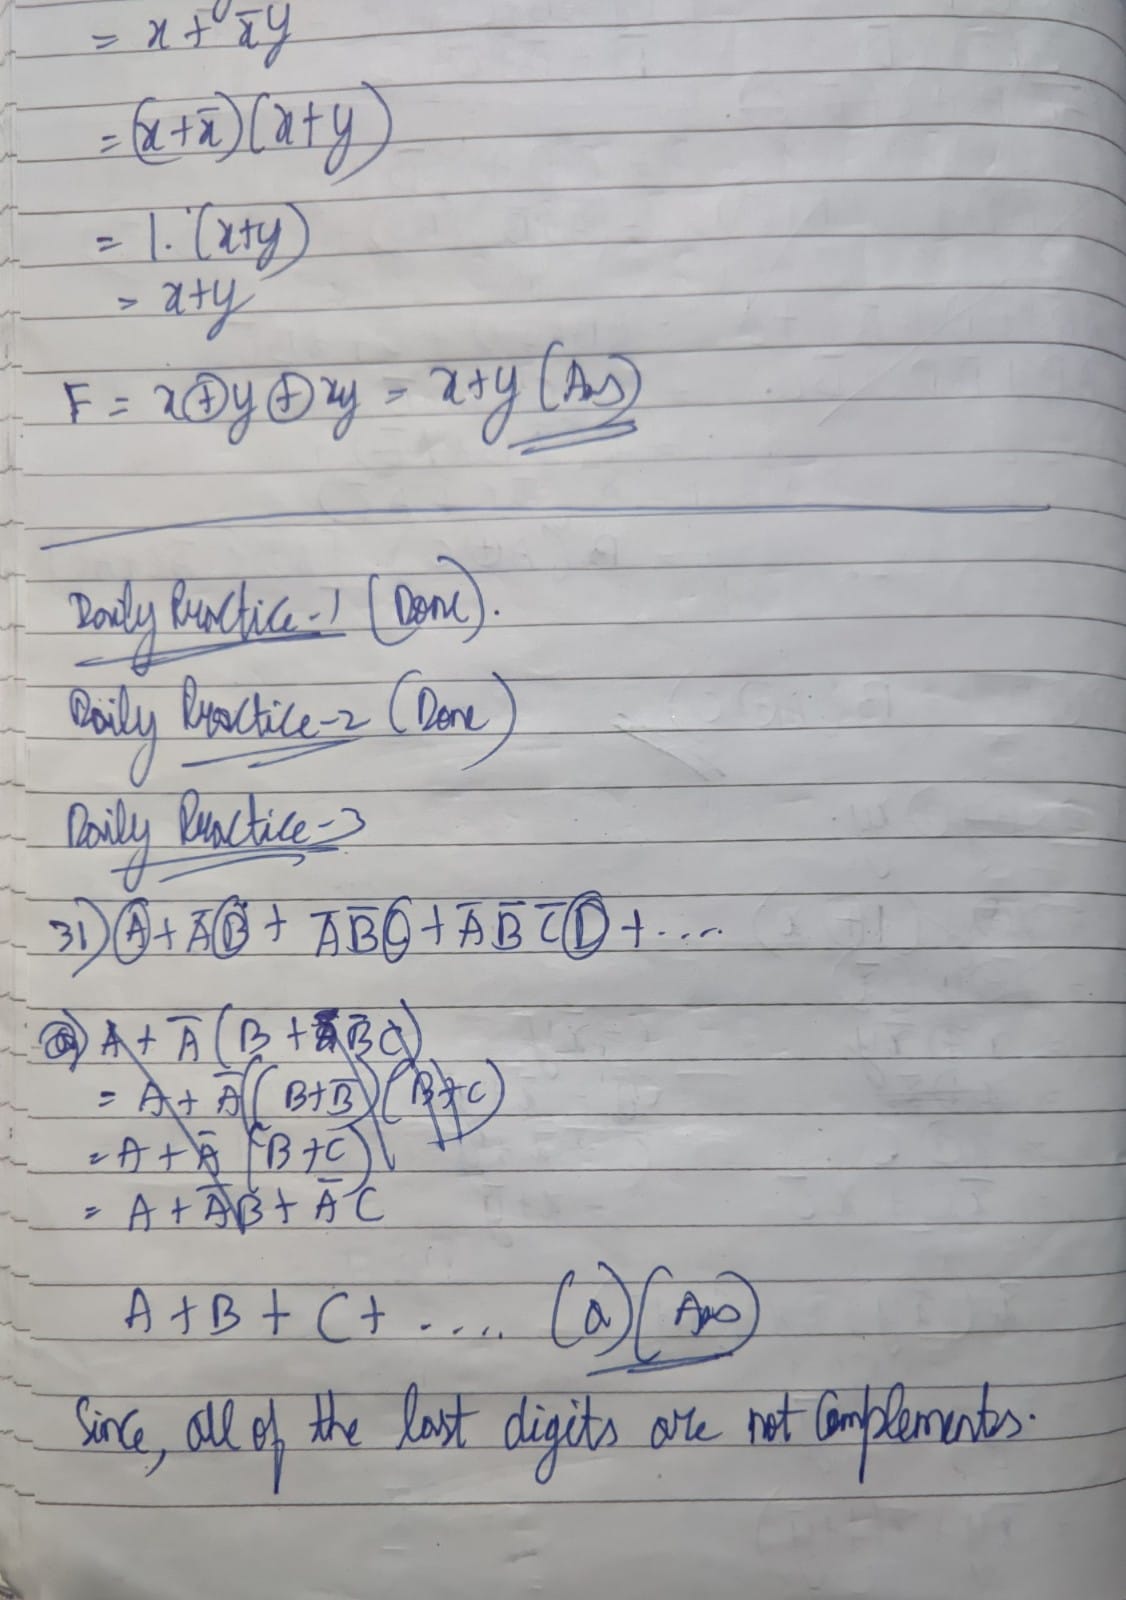 = x + x̄y
= (x+x̄)(x+y)
= 1.(x+y)
= x+y
F = x⊕y⊕xy = x+y (Ans)
Daily Practice-1 (Done).
Daily Practice-2 (Done)
Daily Practice-3
31) A + ĀB + ĀB̄C + ĀB̄C̄D + ....
(a) A + Ā(B + B̄C)
= A + Ā((B+B̄)(B+C)
= A + Ā(B+C)
= A + ĀB + ĀC
A + B + C + ..... (a) (Ans)
Since, all of the last digits are not Complements.